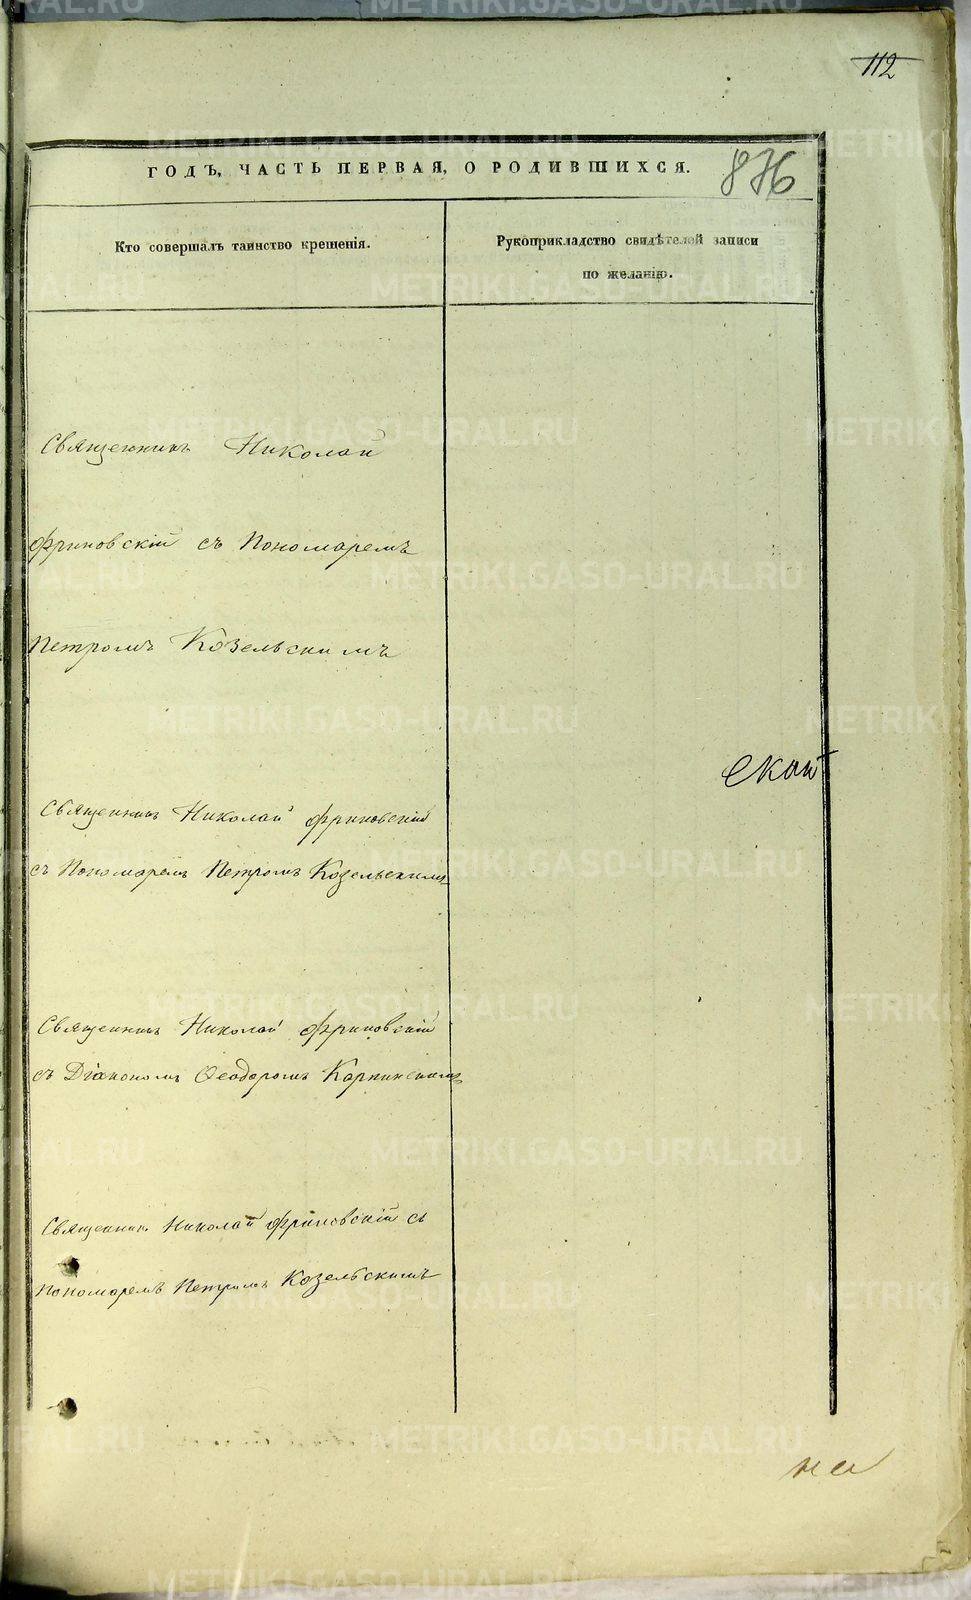 112
ГОДЪ, ЧАСТЬ ПЕРВАЯ, О РОДИВШИХСЯ.
876
Кто совершалъ таинство крещенія.
Рукоприкладство свидѣтелей записи
по желанію.
Священникъ Николай
Фриновскій съ Пономаремъ
Петромъ Козельскимъ
Священникъ Николай Фриновскій
съ Пономаремъ Петромъ Козельскимъ
Священникъ Николай Фриновскій
съ Діакономъ Ѳеодоромъ Карпинскимъ
Священник Николай Фриновскій съ
пономаремъ Петромъ Козельскимъ
METRIKI.GASO-URAL.RU